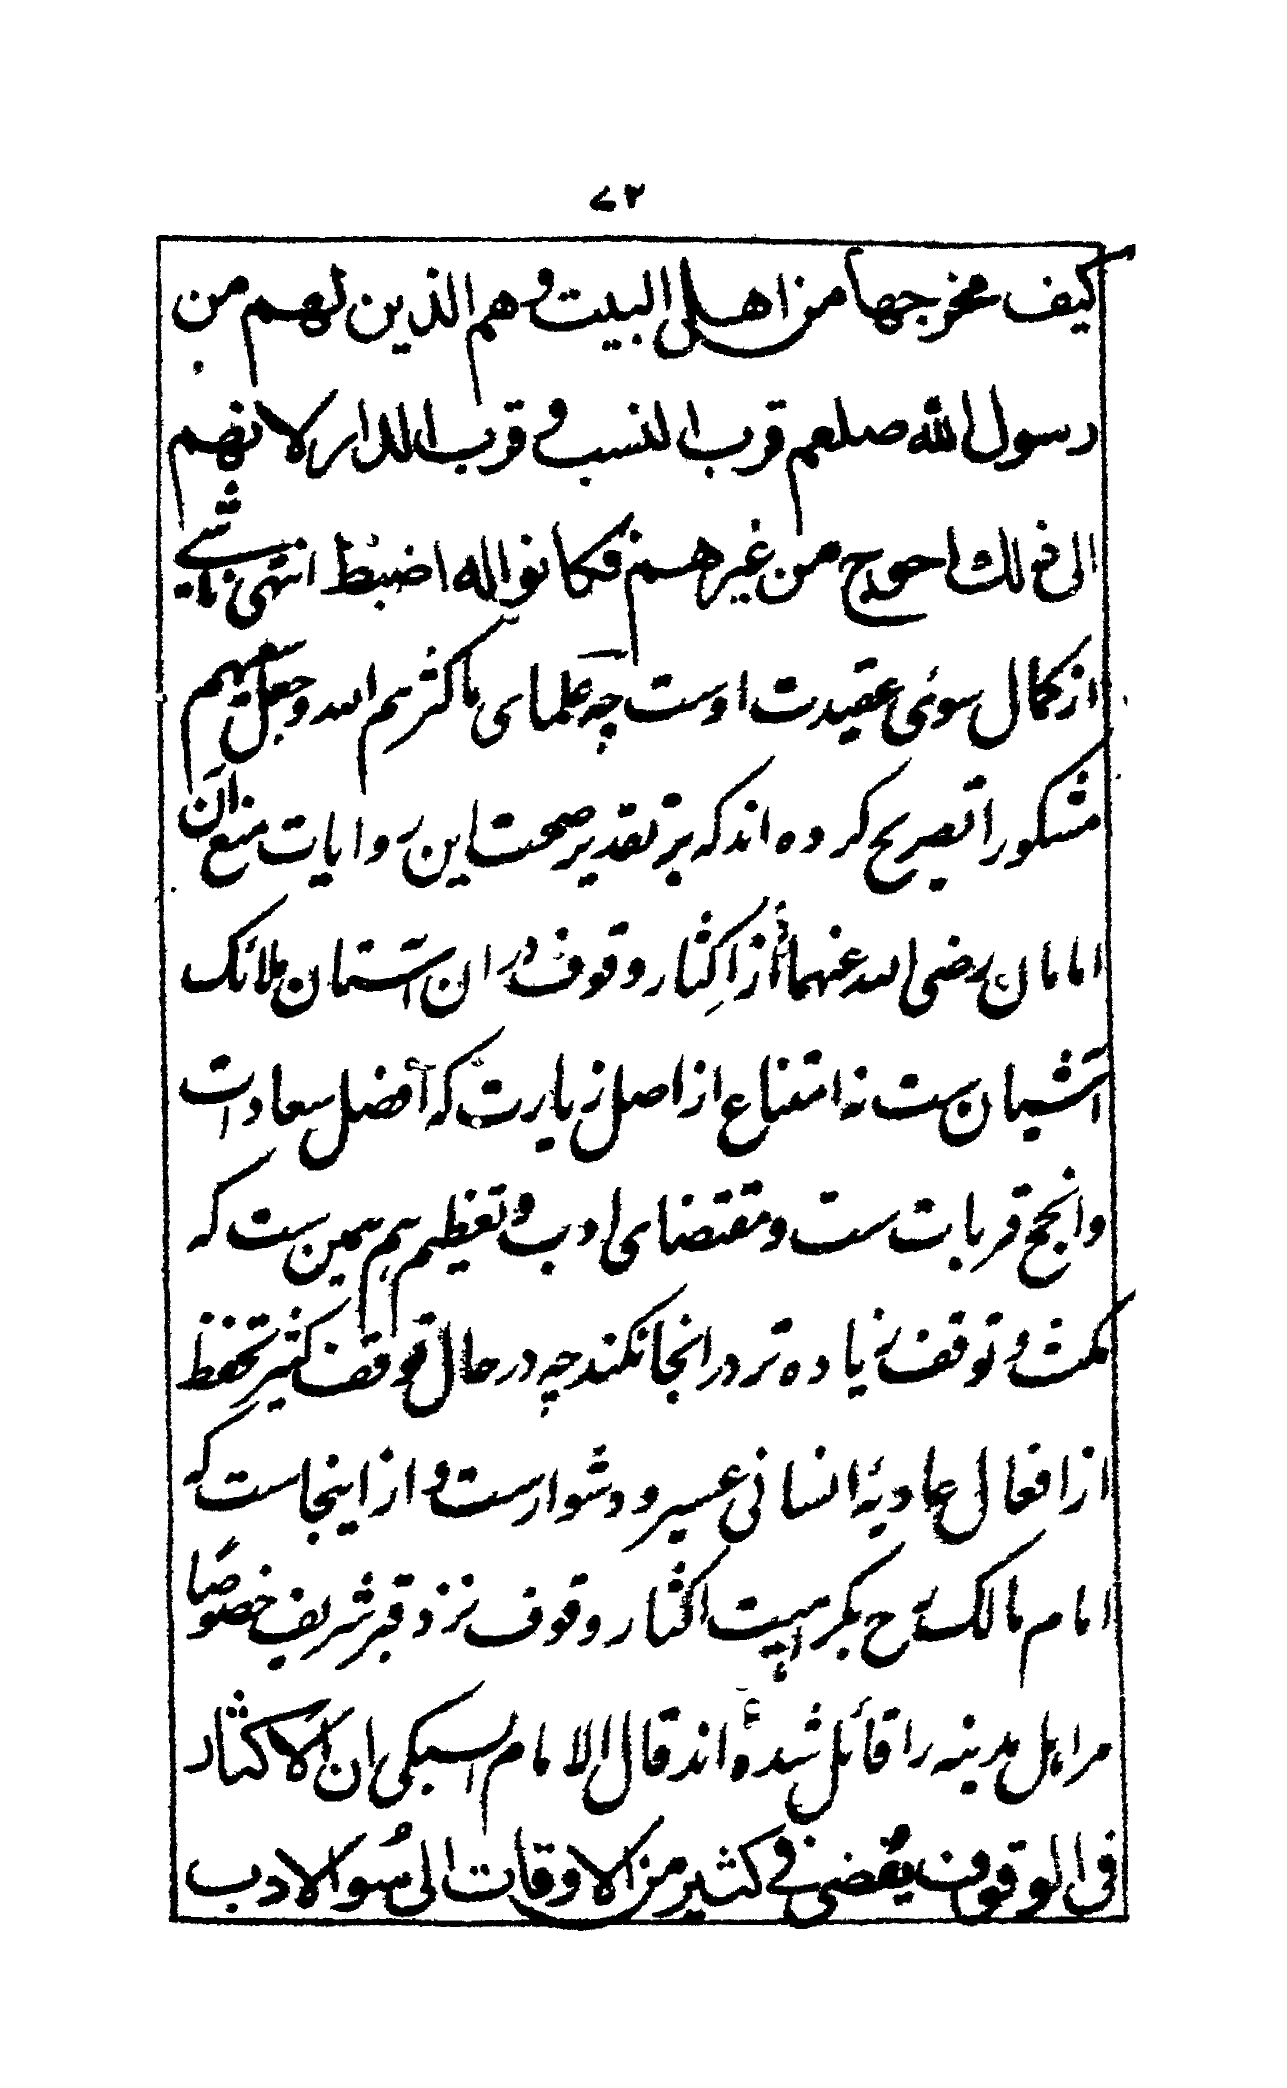 ۷۲
كيف مخرجها من اهل البيت وهم الذين لهم من
رسول الله صلعم قرب النسب وقرب الدار لانهم
الى ذلك احوج من غيرهم فكانوا له اضبط انتهى ناشے
از کمال سوئی عقیدت اوست چه علمای ما کثرهم الله وجعل سعیهم
مشکورا تصریح کرده اند که بر تقدیر صحت این روایات منع آن
امامان رضی الله عنهما از اکثار وقوف در ان آستان ملائک
آشیان ست نه امتناع از اصل زیارت که افضل سعادات
وانجح قربات ست ومقتضای ادب وتعظیم هم همین ست که
مکث و توقف زیاده تر در انجا نکنند چه در حال توقف کثیر تحفظ
از افعال عادیۀ انسانی عسیر ودشوارست واز اینجاست که
امام مالک رح بکراهیت اکثار وقوف نزد قبر شریف خصوصا
مر اهل مدینه را قائل شده اند قال الامام السبکی ان الاکثار
فى الوقوف يفضى فى كثير من الاوقات الى سوء الادب